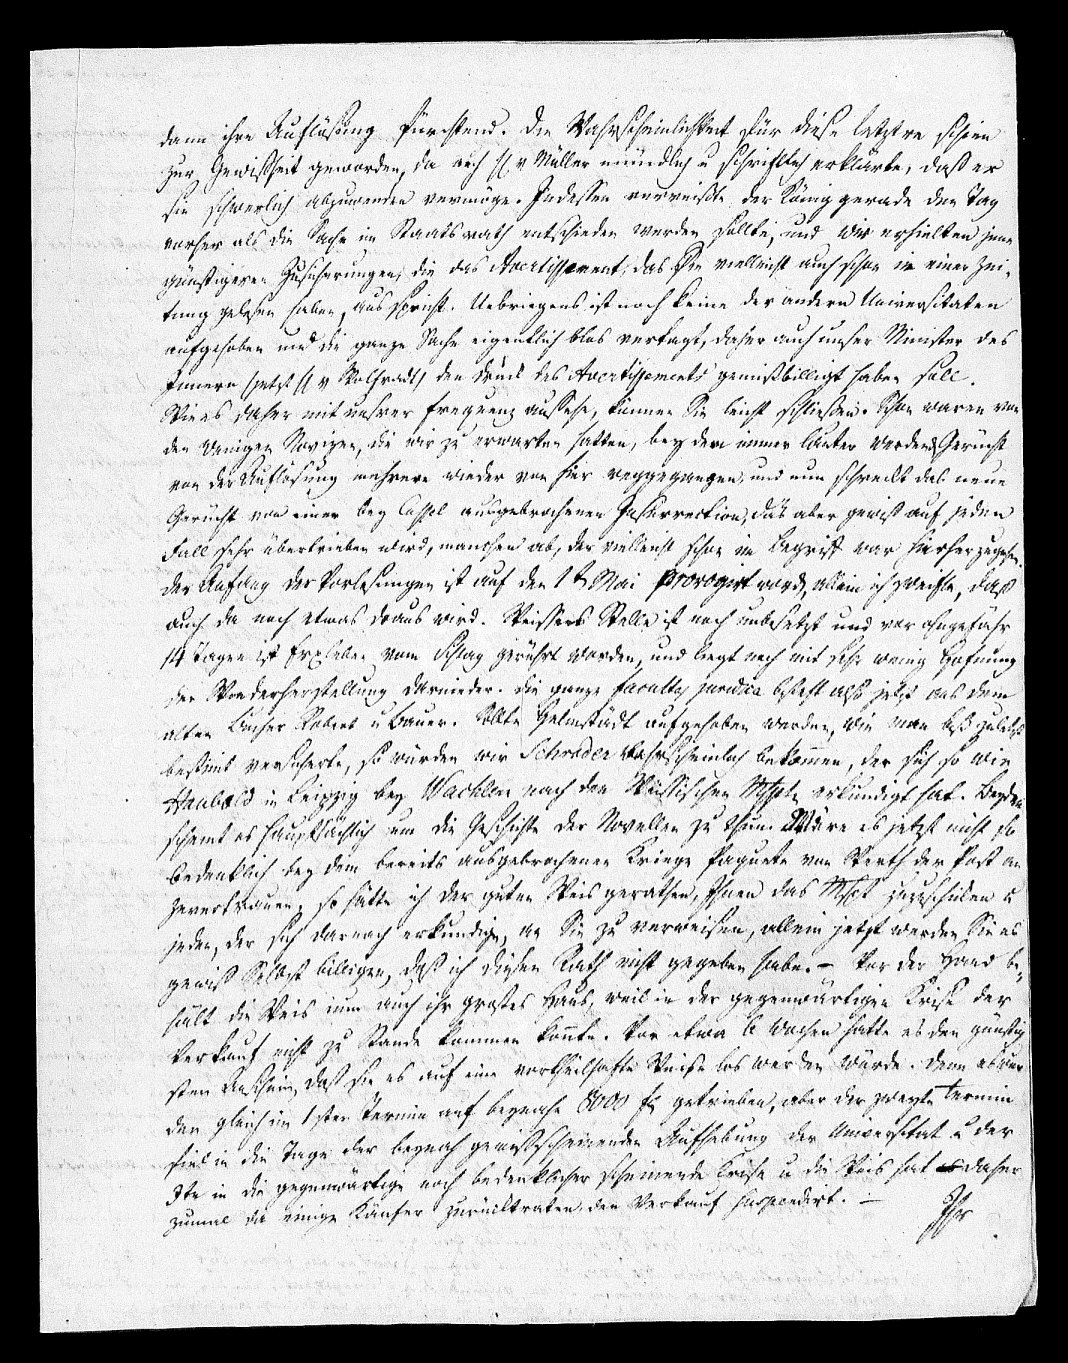 dann ihre Auflösung fürchtend. Die Wahrscheinlichkeit für diese letztre schien
zur Gewißheit geworden, da auch H v Müller mündlich u schriftlich erklärte, daß er
sie schwerlich abzuwenden vermöge. Indessen verreißte der König gerade den Tag
vorher als die Sache im Staatsrath entschieden werden sollte, und wir erhielten jene
günstigeren Zusicherungen, die das Avertissement, das Sie vielleicht auch schon in einer Zei-
tung gelesen haben, ausspricht. Uebriegens ist noch keine der andern Universitaten
aufgehoben und die ganze Sache eigentlich blos vertagt, daher auch unser Minister des
Innern (jetzt H v Wolfradt) den Druck des Avertissements gemißbilligt haben soll.
Wie es daher mit unsrer Frequenz aussehe, können Sie leicht schließen. Schon waren von
den wenigen Novizen, die wir zu erwarten hatten, bey dem immer lauter werdend Gerücht
von der Auflösung mehrere wieder von hier weggegangen, und nun schreckt das neue
Gerücht von einer bey Cassel ausgebrochenen Insurrection, das aber gewiß auf jeden
Fall sehr übertrieben wird, manchen ab, der vielleicht schon im Begriff war hierher zugehen.
Der Anfang der Vorlesungen ist auf den 1t Mai prorogirt word, allein ich zweifle, daß
auch da noch etwas draus wird. Weissers Stelle ist noch unbesetzt und vor ohngefähr
14 Tagen ist Erxleben vom Schlag gerührt worden, und liegt noch mit sehr wenig Hofnung
der Wiederherstellung darnieder. Die ganze facultas juridica besteht also jetzt aus dem
alten Bucher Robert u Bauer. Sollte Helmstädt aufgehoben werden, wie man biß zuletzt
bestimt versicherte, so würden wir Schrader wahrscheinlich bekommen, der sich so wie
Haubold in Leipzig bey Wachler nach den Weissischen Mspten erkundigt hat. Beyden
scheint es hauptsächlich um die Geschichte der Novellen zu thun. Wäre es jetzt nicht so
bedenklich bey dem bereits ausgebrochenen Kriege Paquete von Werth der Post an
zuvertrauen, so hätte ich der guten Weis gerathen, Ihnen das Mspt zuzuschicken u
jeden, der sich darnach erkundige, an Sie zu verweisen, allein jetzt werden Sie es
gewiß Selbst billigen, daß ich diesen Rath nicht gegeben habe. – Vor der Hand be-
hält die Weis nun auch ihr großes Haus, weil in der gegenwärtigen Krise der
Verkauf nicht zu Stande kommen konnte. Vor etwa 6 Wochen hatte es den günstig
sten Anschein, daß sie es auf eine vortheilhafte Weise los werden würde. Denn es wur
den gleich im 1sten Termin auf beynahe 8000 fl getrieben, aber der zweyte Termin
fiel in die Tage der beynah gewißscheinenden Aufhebung der Universitat u der
3te in die gegenwärtige noch bedenklicher scheinende Krise u die Weis hat daher
zumal da einige Käufer zurücktraten, den Verkauf suspendirt. –
Ihr